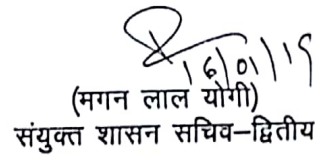 16/01/19
(मगन लाल योगी)
संयुक्त शासन सचिव–द्वितीय